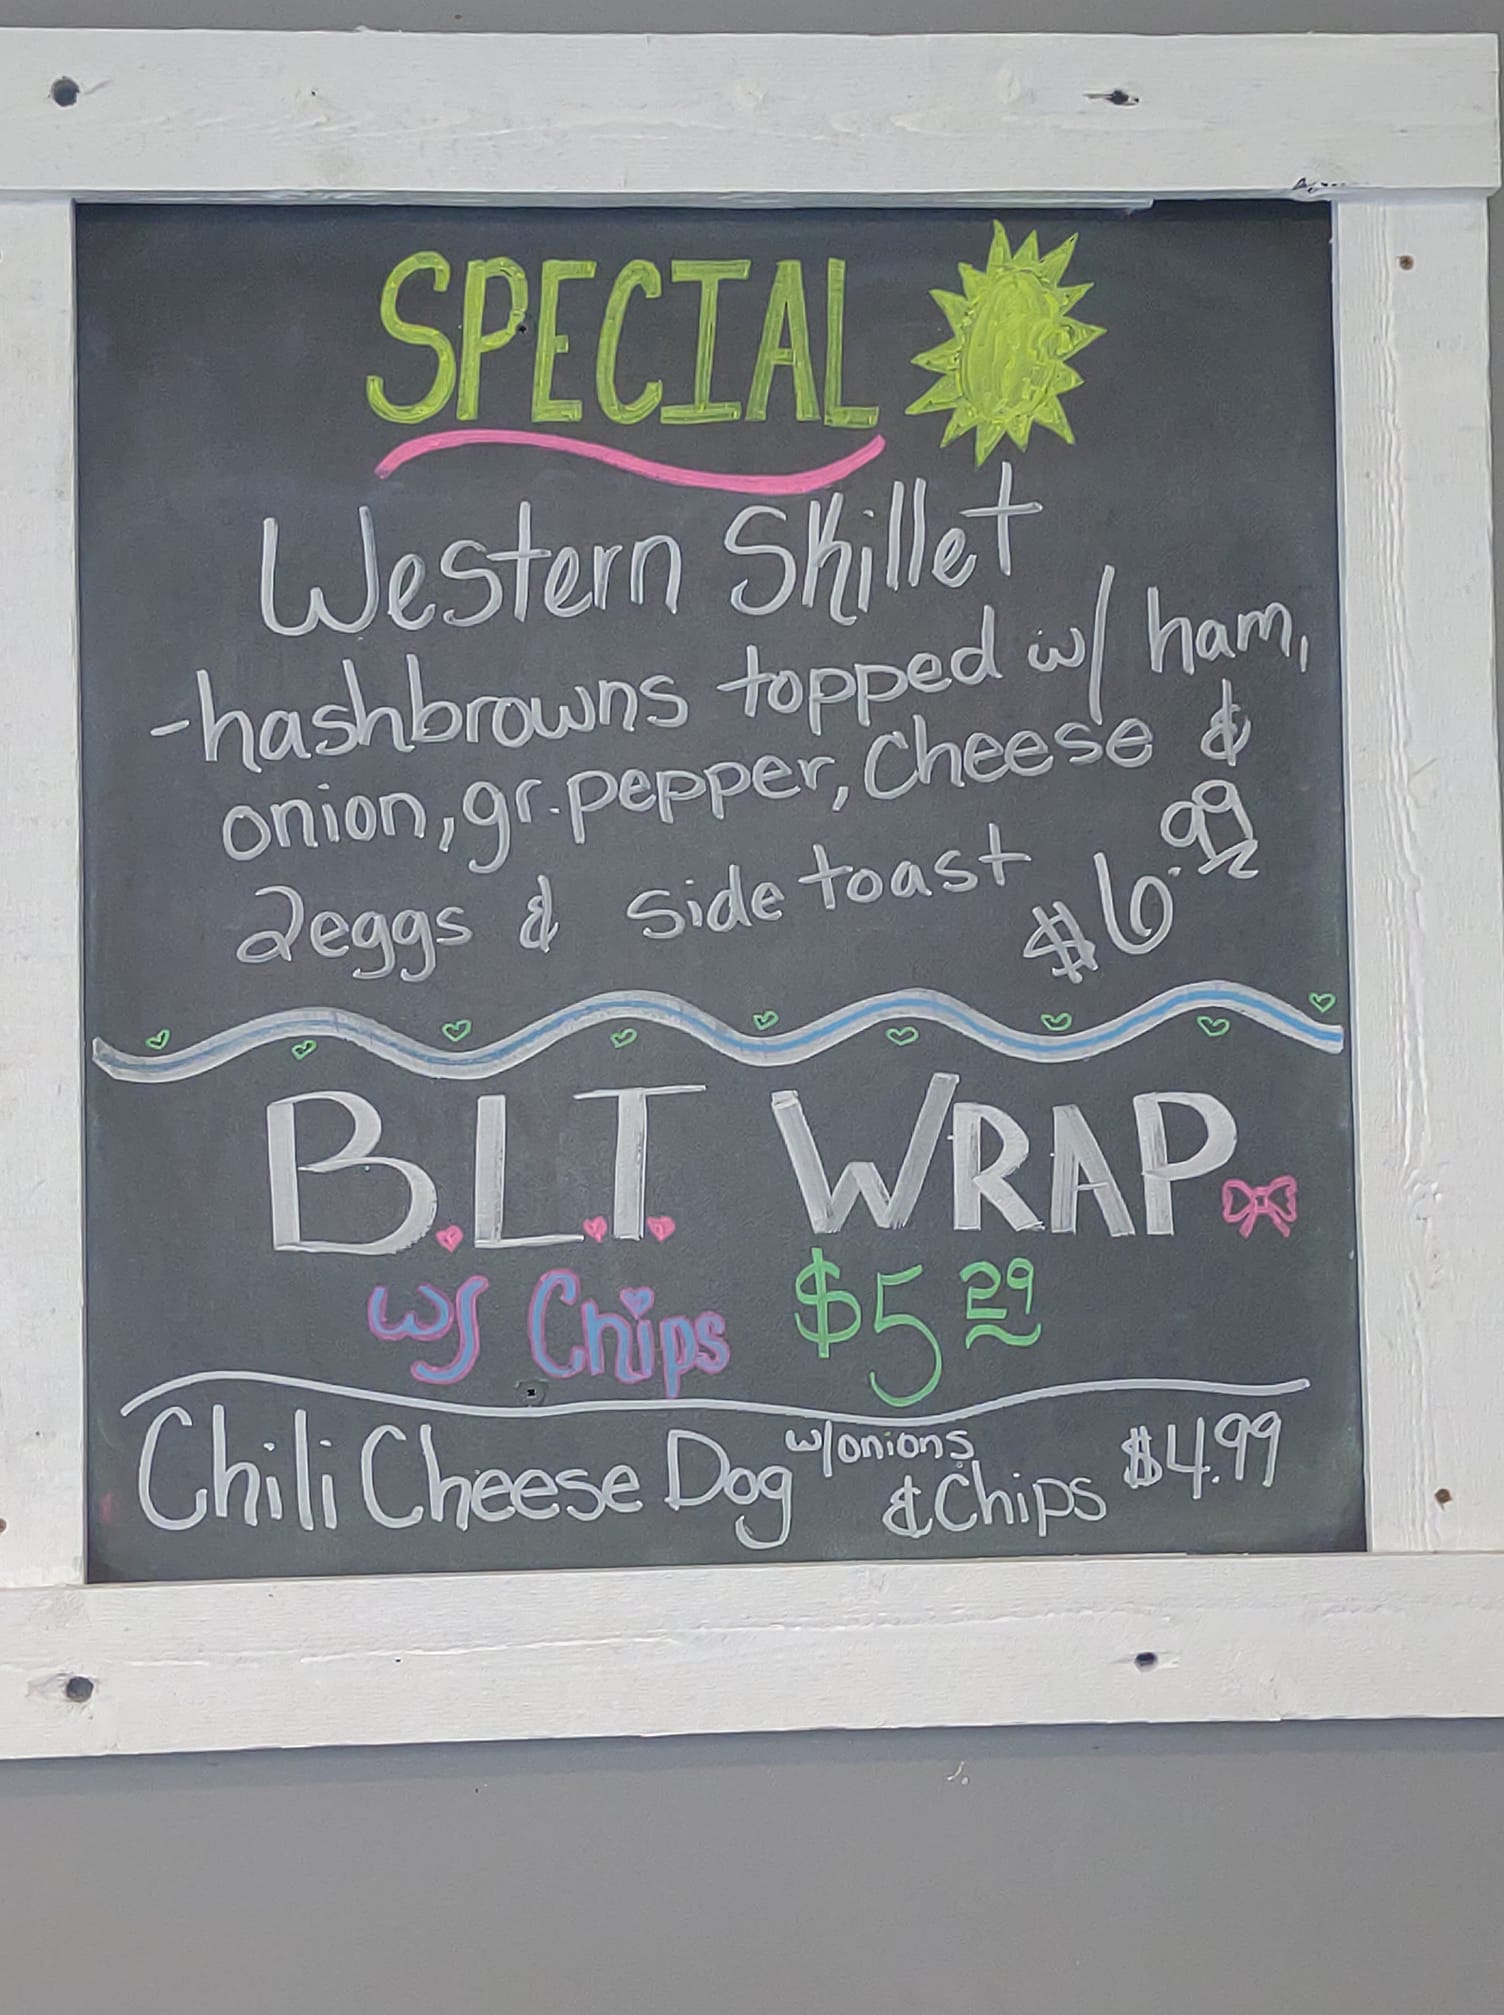 SPECIAL
Western Skillet
-hashbrowns topped w/ ham,
onion, gr. pepper, cheese &
2eggs & side toast $6.99
B.L.T. WRAP
w/ Chips $5 29
Chili Cheese Dog w/onions
& Chips $4.99